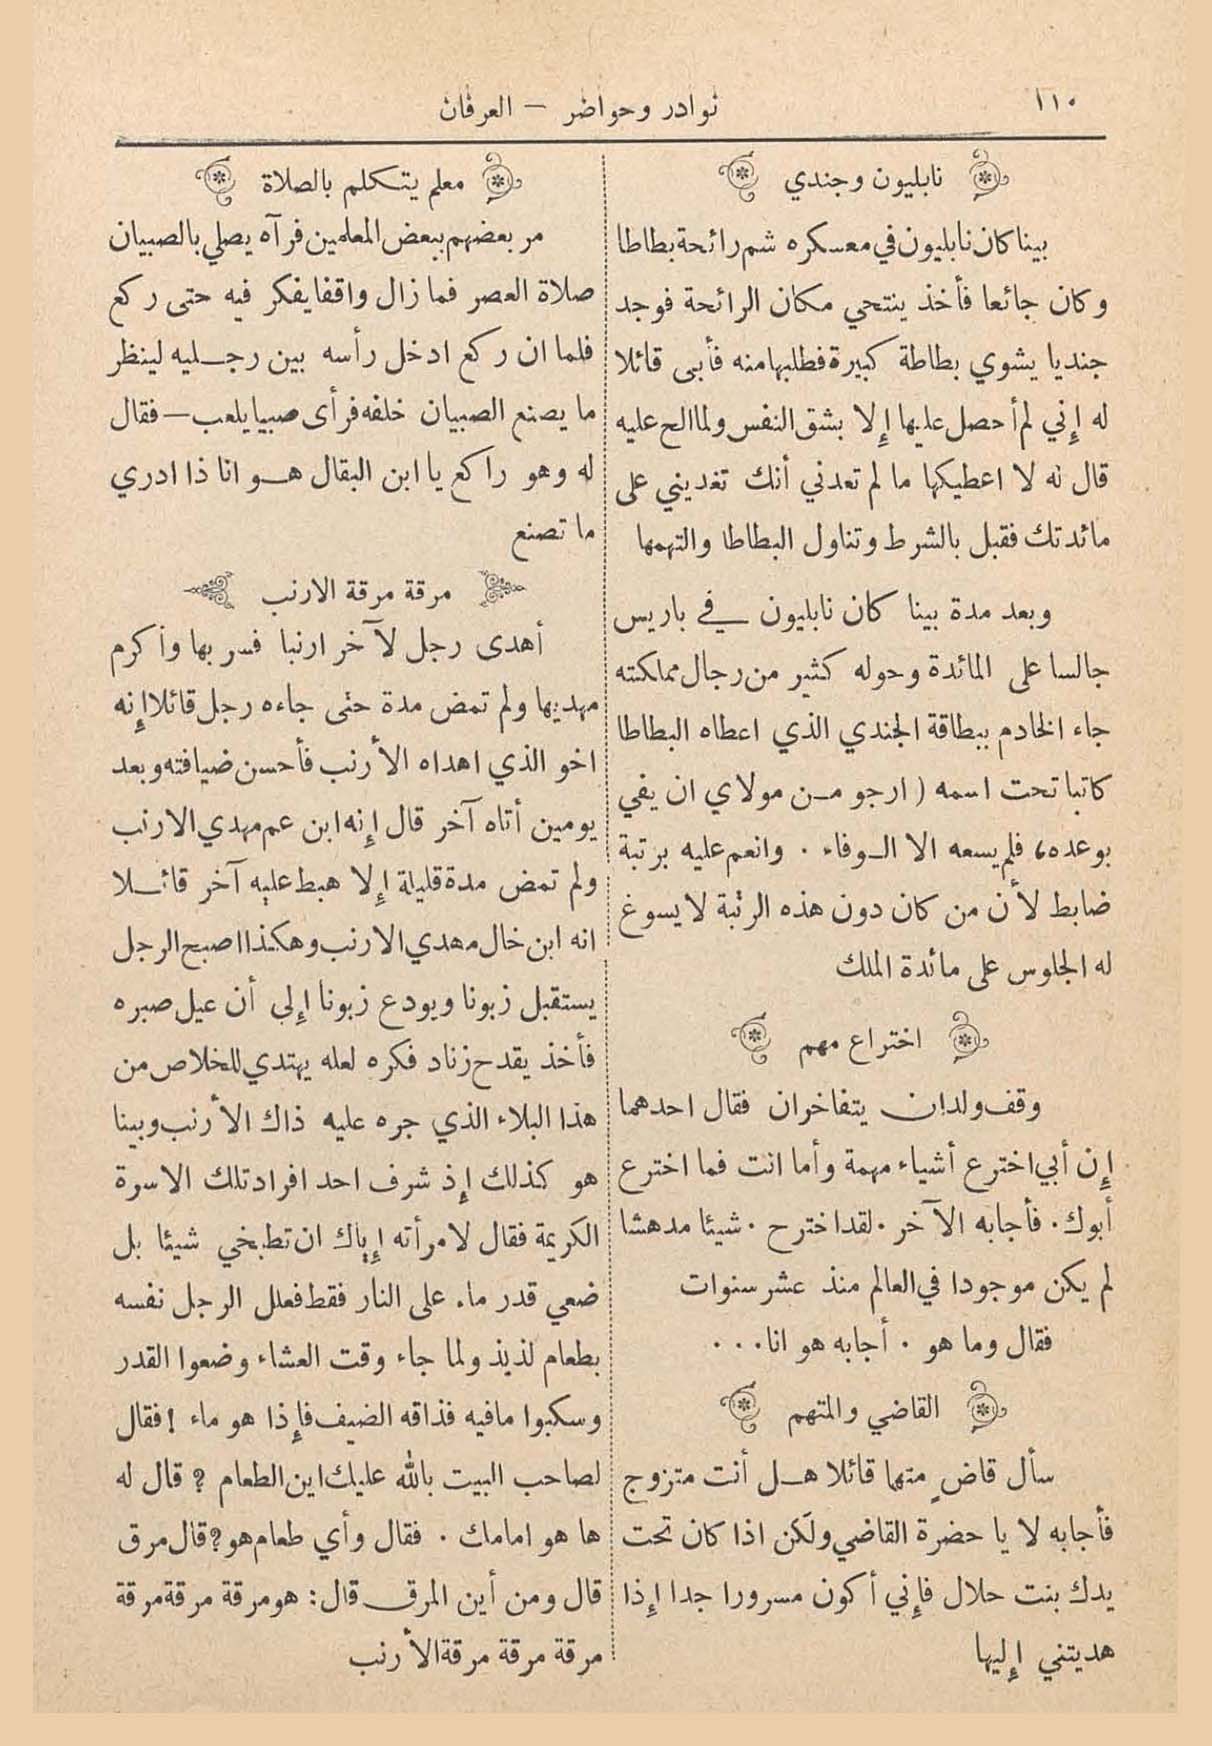 ١١٠
نوادر وحواضر — العرفان
نابليون وجندي
بينا كان نابليون في معسكره شم رائحة بطاطا
وكان جائعا فأخذ ينتحي مكان الرائحة فوجد
جنديا يشوي بطاطة كبيرة فطلبها منه فأبى قائلا
له إني لم أحصل عليها إلا بشق النفس ولما الح عليه
قال له لا اعطيكها ما لم تعدني أنك تغديني على
مائدتك فقبل بالشرط وتناول البطاطا والتهمها
وبعد مدة بينا كان نابليون في باريس
جالسا على المائدة وحوله كثير من رجال مملكته
جاء الخادم ببطاقة الجندي الذي اعطاه البطاطا
كاتبا تحت اسمه ( ارجو من مولاي ان يفي
بوعده، فلم يسعه الا الوفاء . وانعم عليه برتبة
ضابط لأن من كان دون هذه الرتبة لا يسوغ
له الجلوس على مائدة الملك
اختراع مهم
وقف ولدان يتفاخران فقال احدهما
إن أبي اخترع أشياء مهمة وأما انت فما اخترع
أبوك . فأجابه الآخر . لقد اخترح . شيئا مدهشا
لم يكن موجودا في العالم منذ عشر سنوات
فقال وما هو . أجابه هو انا . . .
القاضي والمتهم
سأل قاضٍ متهما قائلا هل أنت متزوج
فأجابه لا يا حضرة القاضي ولكن اذا كان تحت
يدك بنت حلال فإني أكون مسرورا جدا إذا
هديتني إليها
معلم يتكلم بالصلاة
مر بعضهم ببعض المعلمين فرآه يصلي بالصبيان
صلاة العصر فما زال واقفا يفكر فيه حتى ركع
فلما ان ركع ادخل رأسه بين رجليه لينظر
ما يصنع الصبيان خلفه فرأى صبيا يلعب — فقال
له وهو راكع يا ابن البقال هو انا ذا ادري
ما تصنع
مرقة مرقة الارنب
أهدى رجل لآخر ارنبا فسر بها وأكرم
مهديها ولم تمض مدة حتى جاءه رجل قائلا إنه
اخو الذي اهداه الأرنب فأحسن ضيافته وبعد
يومين أتاه آخر قال إنه ابن عم مهدي الارنب
ولم تمض مدة قليلة إلا هبط عليه آخر قائلا
انه ابن خال مهدي الارنب وهكذا اصبح الرجل
يستقبل زبونا ويودع زبونا إلي أن عيل صبره
فأخذ يقدح زناد فكره لعله يهتدي للخلاص من
هذا البلاء الذي جره عليه ذاك الأرنب وبينا
هو كذلك إذ شرف احد افراد تلك الاسرة
الكريمة فقال لامرأته إياك ان تطبخي شيئا بل
ضعي قدر ماء على النار فقط فعلل الرجل نفسه
بطعام لذيذ ولما جاء وقت العشاء وضعوا القدر
وسكبوا مافيه فذاقه الضيف فإذا هو ماء ! فقال
لصاحب البيت بالله عليك اين الطعام ؟ قال له
ها هو امامك . فقال وأي طعام هو ؟ قال مرق
قال ومن أين المرق قال : هو مرقة مرقة مرقة
مرقة مرقة مرقة الأرنب